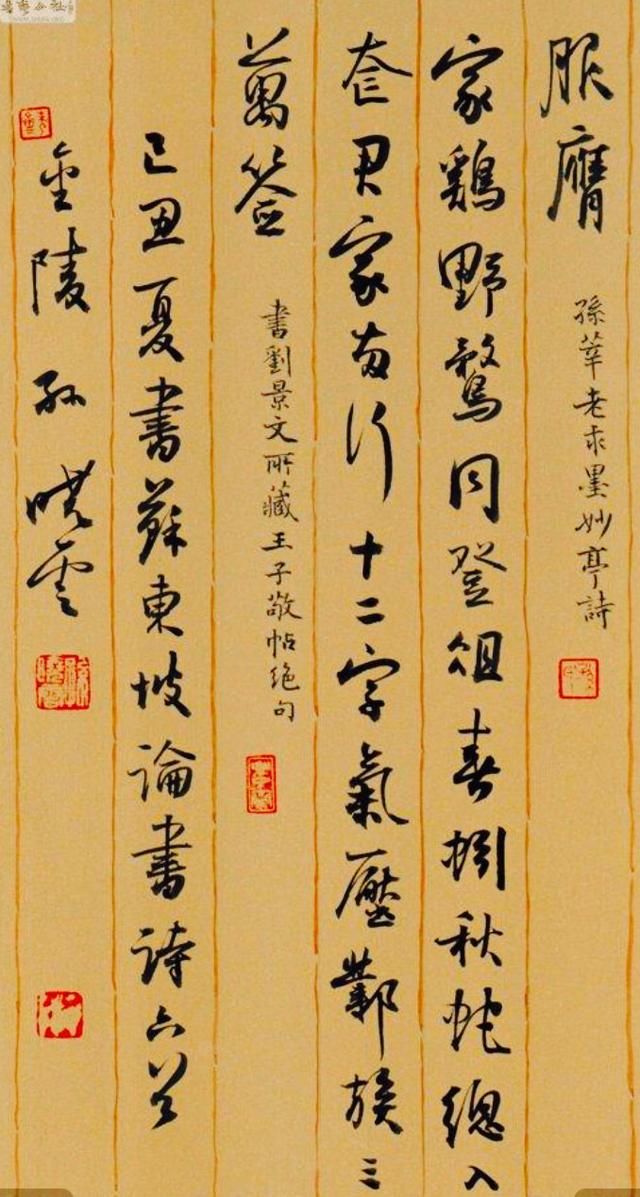 服膺
孫莘老求墨妙亭詩
家鷄野鶩同登俎春蚓秋蛇總入
奩君家兩行十二字氣壓鄴侯三
萬簽
書劉景文所藏王子敬帖絕句
己丑夏書蘇東坡論書詩六首
金陵孫曉雲